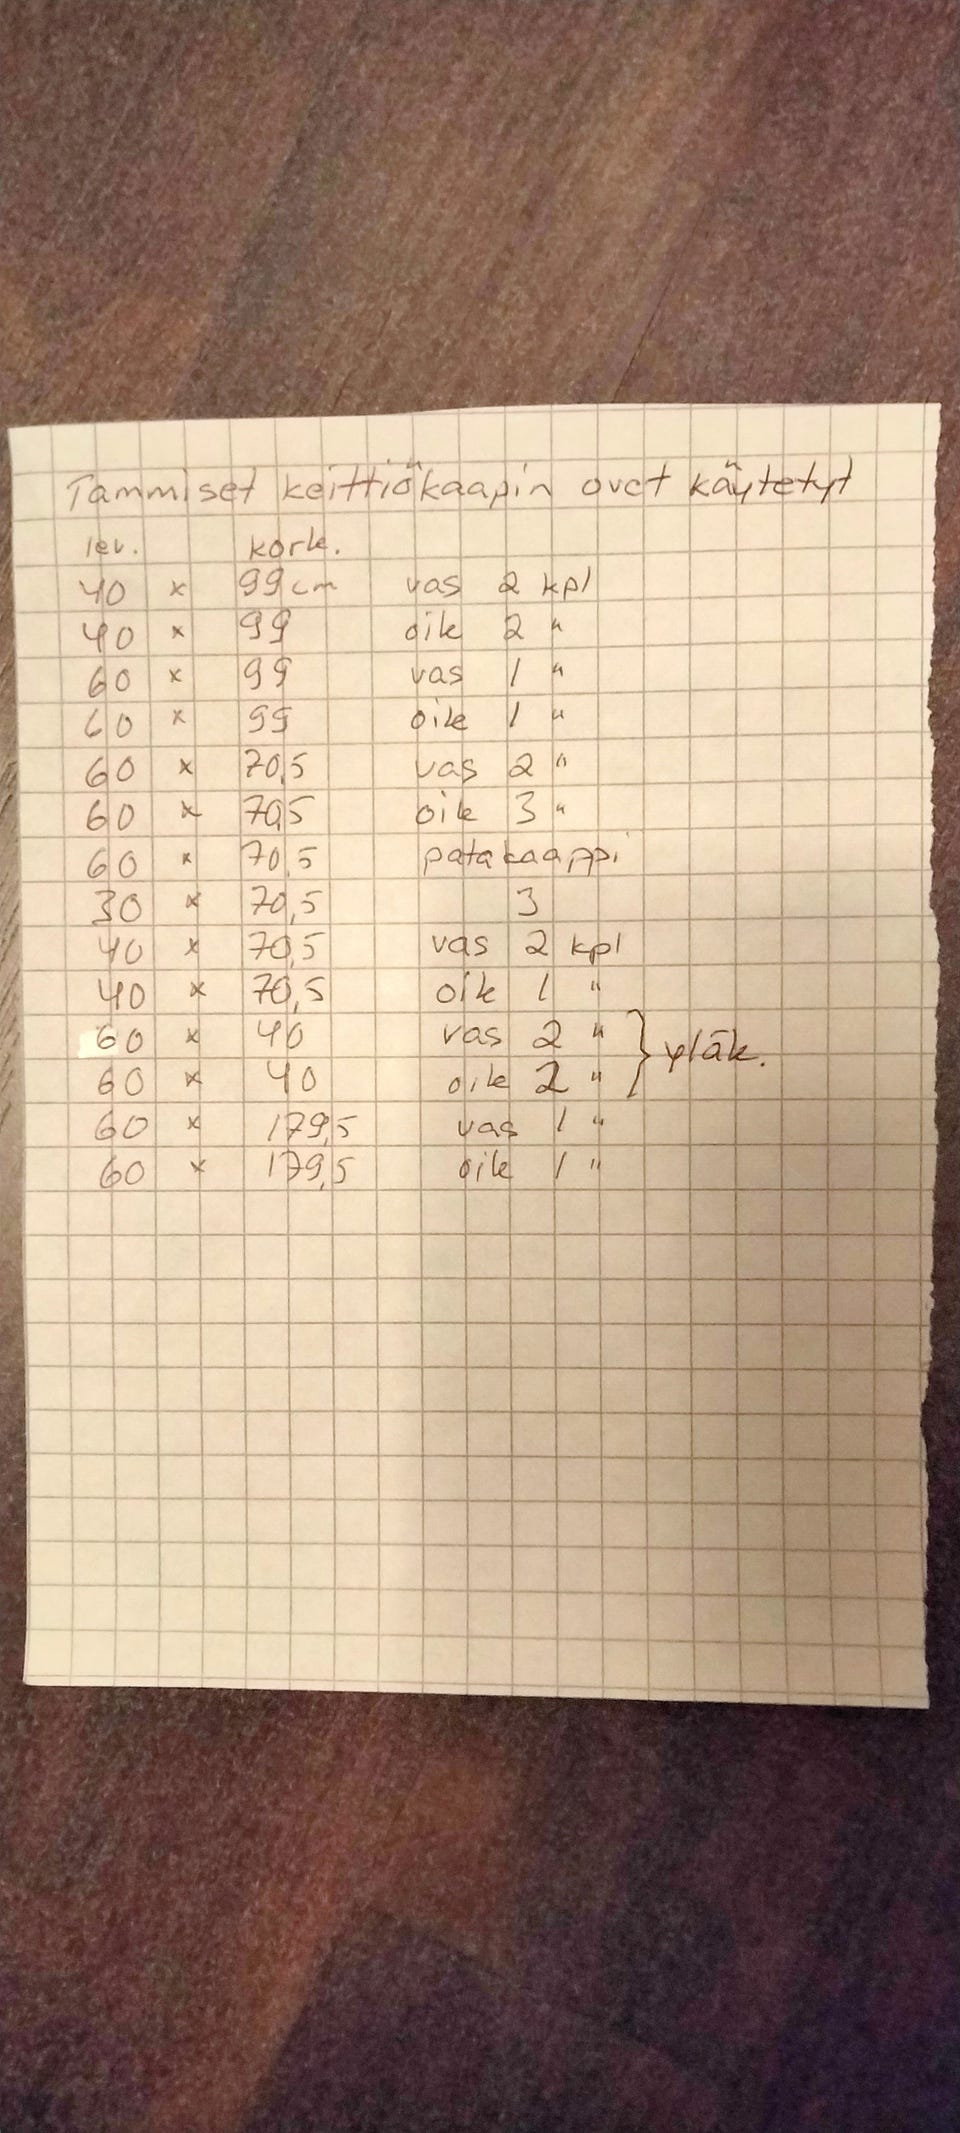 Tammiset keittiökaapin ovet käytetyt
lev. kork.
40 x 99 cm vas 2 kpl
40 x 99 oik 2 "
60 x 99 vas 1 "
60 x 99 oik 1 "
60 x 70,5 vas 2 "
60 x 70,5 oik 3 "
60 x 70,5 patakaappi
30 x 70,5 3
40 x 70,5 vas 2 kpl
40 x 70,5 oik 1 "
60 x 40 vas 2 " } yläk.
60 x 40 oik 2 "
60 x 179,5 vas 1 "
60 x 179,5 oik 1 "